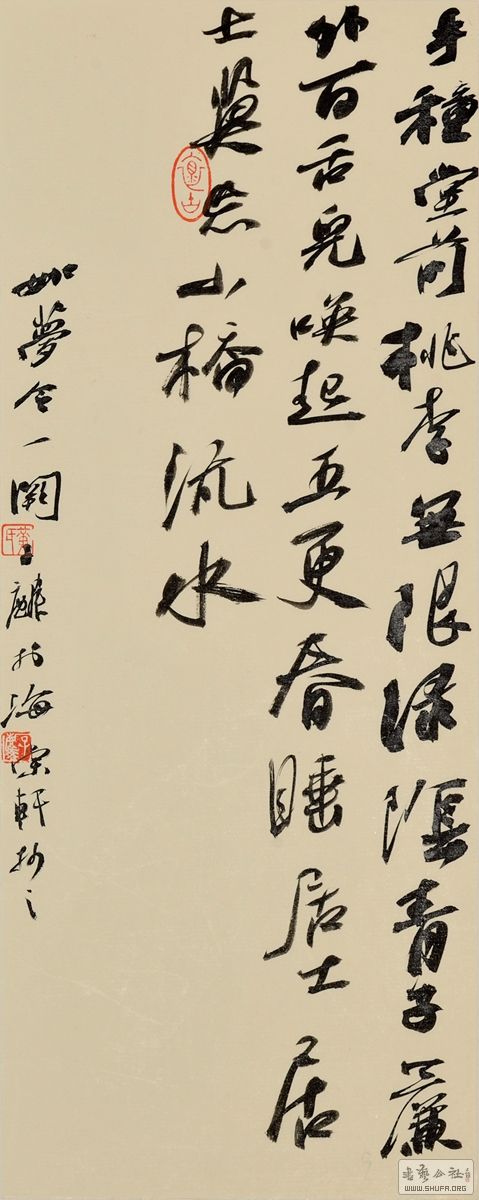 手種堂前桃李無限綠陰青子簾
外百舌兒喚起五更春睡居士居
士莫忘小橋流水
如夢令一闋子麟於海 軒抄之
書藝公社
WWW.SHUFA.ORG